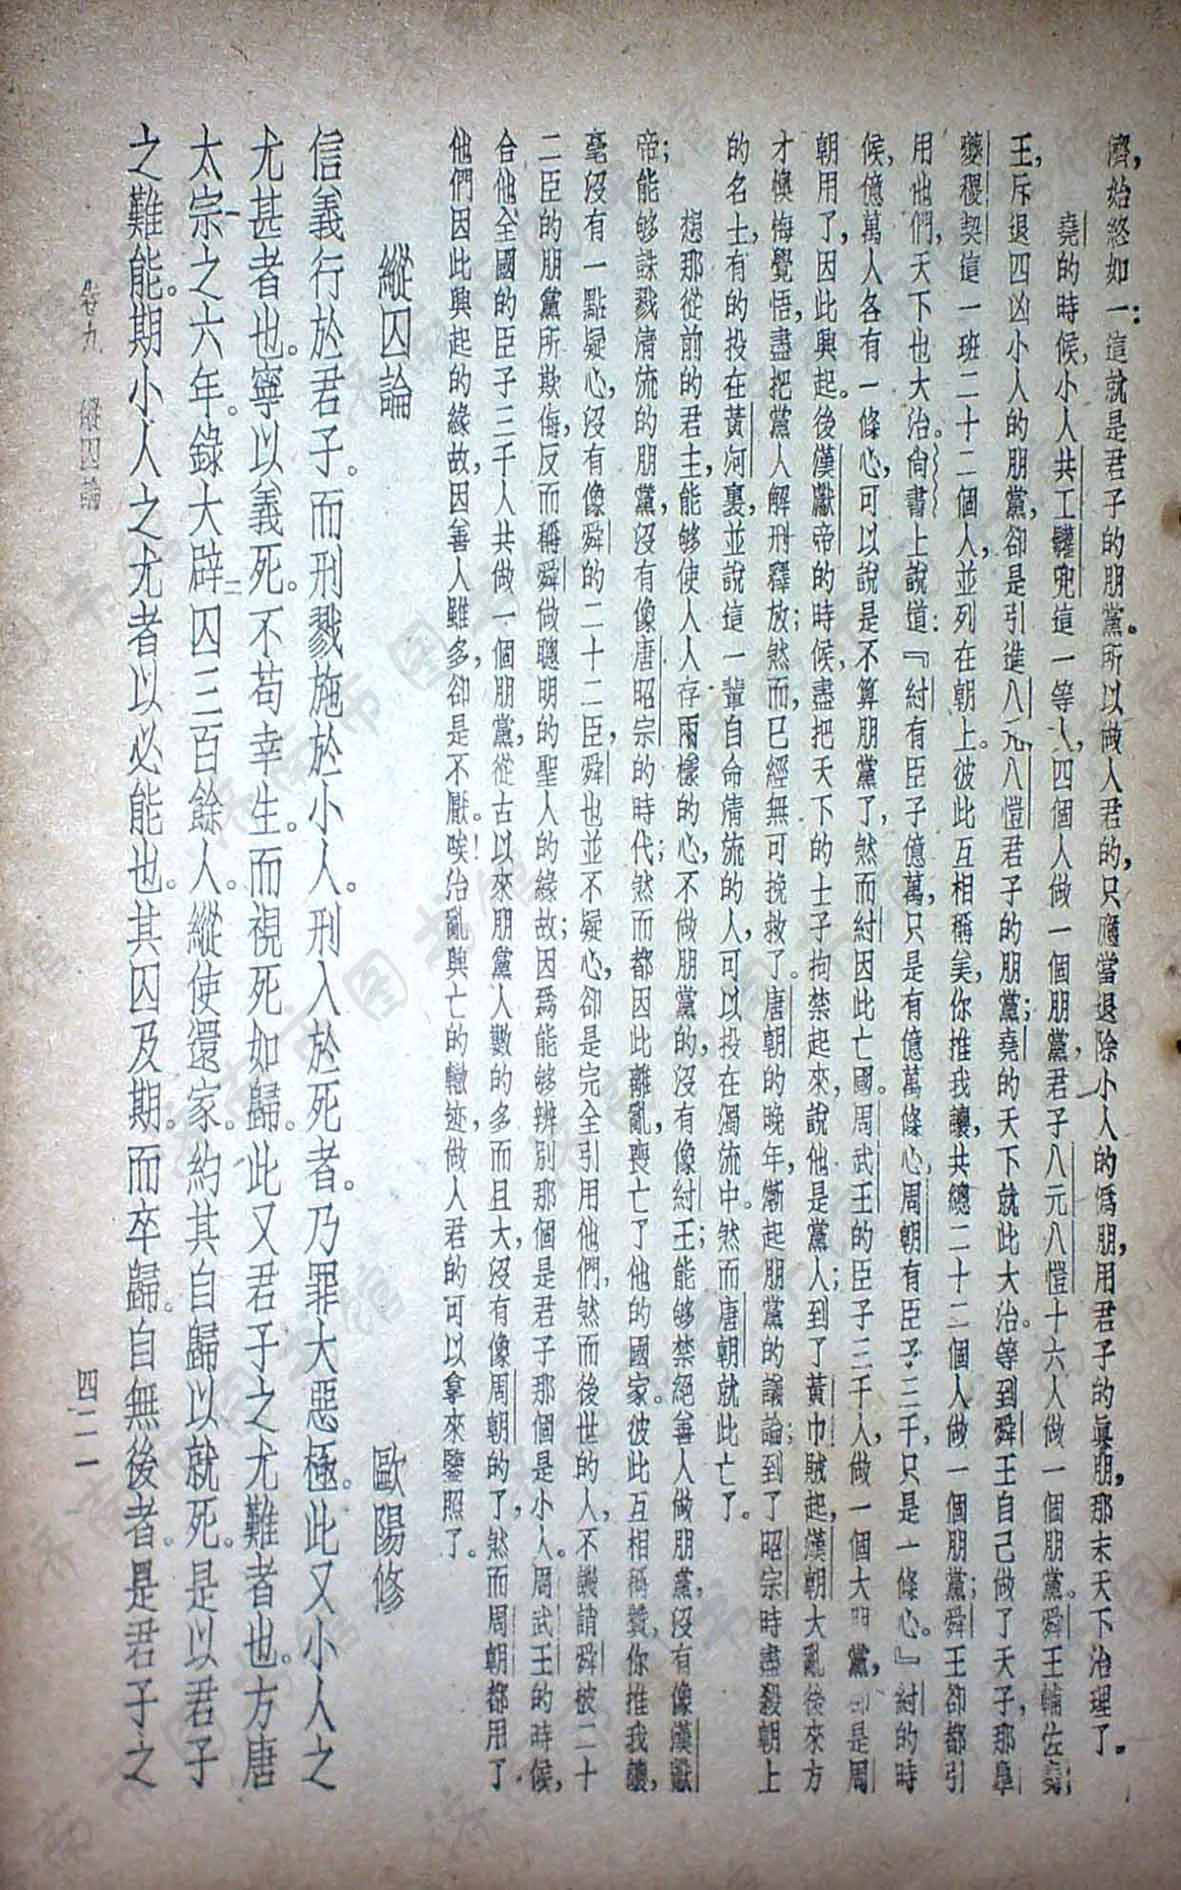 濟，始終如一：這就是君子的朋黨。所以做人君的，只應當退除小人的僞朋，用君子的眞朋，那末天下治理了。
堯的時候，小人共工驩兜這一等人，四個人做一個朋黨，君子八元八愷十六人做一個朋黨。舜王輔佐堯
王，斥退四凶小人的朋黨，卻是引進八元八愷君子的朋黨；堯的天下就此大治。等到舜王自己做了天子，那臯
夔稷契這一班二十二個人，並列在朝上。彼此互相稱美，你推我讓，共總二十二個人做一個朋黨；舜王卻都引
用他們，天下也大治。尙書上說道：『紂有臣子億萬，只是有億萬條心，周朝有臣子三千，只是一條心。』紂的時
候，億萬人各有一條心，可以說是不算朋黨了，然而紂因此亡國。周武王的臣子三千人，做一個大朋黨，卻是周
朝用了，因此興起。後漢獻帝的時候，盡把天下的士子拘禁起來，說他是黨人；到了黃巾賊起，漢朝大亂後來方
才懊悔覺悟，盡把黨人解刑釋放；然而，已經無可挽救了。唐朝的晚年，漸起朋黨的議論；到了昭宗時盡殺朝上
的名士，有的投在黃河裏，並說這一輩自命淸流的人，可以投在濁流中。然而唐朝就此亡了。
想那從前的君主，能够使人人存兩樣的心，不做朋黨的，沒有像紂王；能够禁絕善人做朋黨，沒有像漢獻
帝；能够誅戮淸流的朋黨，沒有像唐昭宗的時代；然而都因此離亂，喪亡了他的國家。彼此互相稱贊，你推我讓，
毫沒有一點疑心，沒有像舜的二十二臣，舜也並不疑心，卻是完全引用他們，然而後世的人，不譏誚舜被二十
二臣的朋黨所欺侮，反而稱舜做聰明的聖人的緣故；因爲能够辨別那個是君子那個是小人。周武王的時候，
合他全國的臣子三千人共做一個朋黨，從古以來朋黨人數的多而且大，沒有像周朝的了，然而周朝都用了
他們因此興起的緣故，因善人雖多，卻是不厭。唉！治亂興亡的轍迹，做人君的可以拿來鑒照了。
縱囚論　歐陽修
信義行於君子。而刑戮施於小人。刑入於死者。乃罪大惡極。此又小人之
尤甚者也。寧以義死。不苟幸生。而視死如歸。此又君子之尤難者也。方唐
太宗一之六年。錄大辟二囚三百餘人。縱使還家。約其自歸以就死。是以君子
之難能。期小人之尤者以必能也。其囚及期。而卒歸。自無後者。是君子之
卷九　縱囚論　四二一